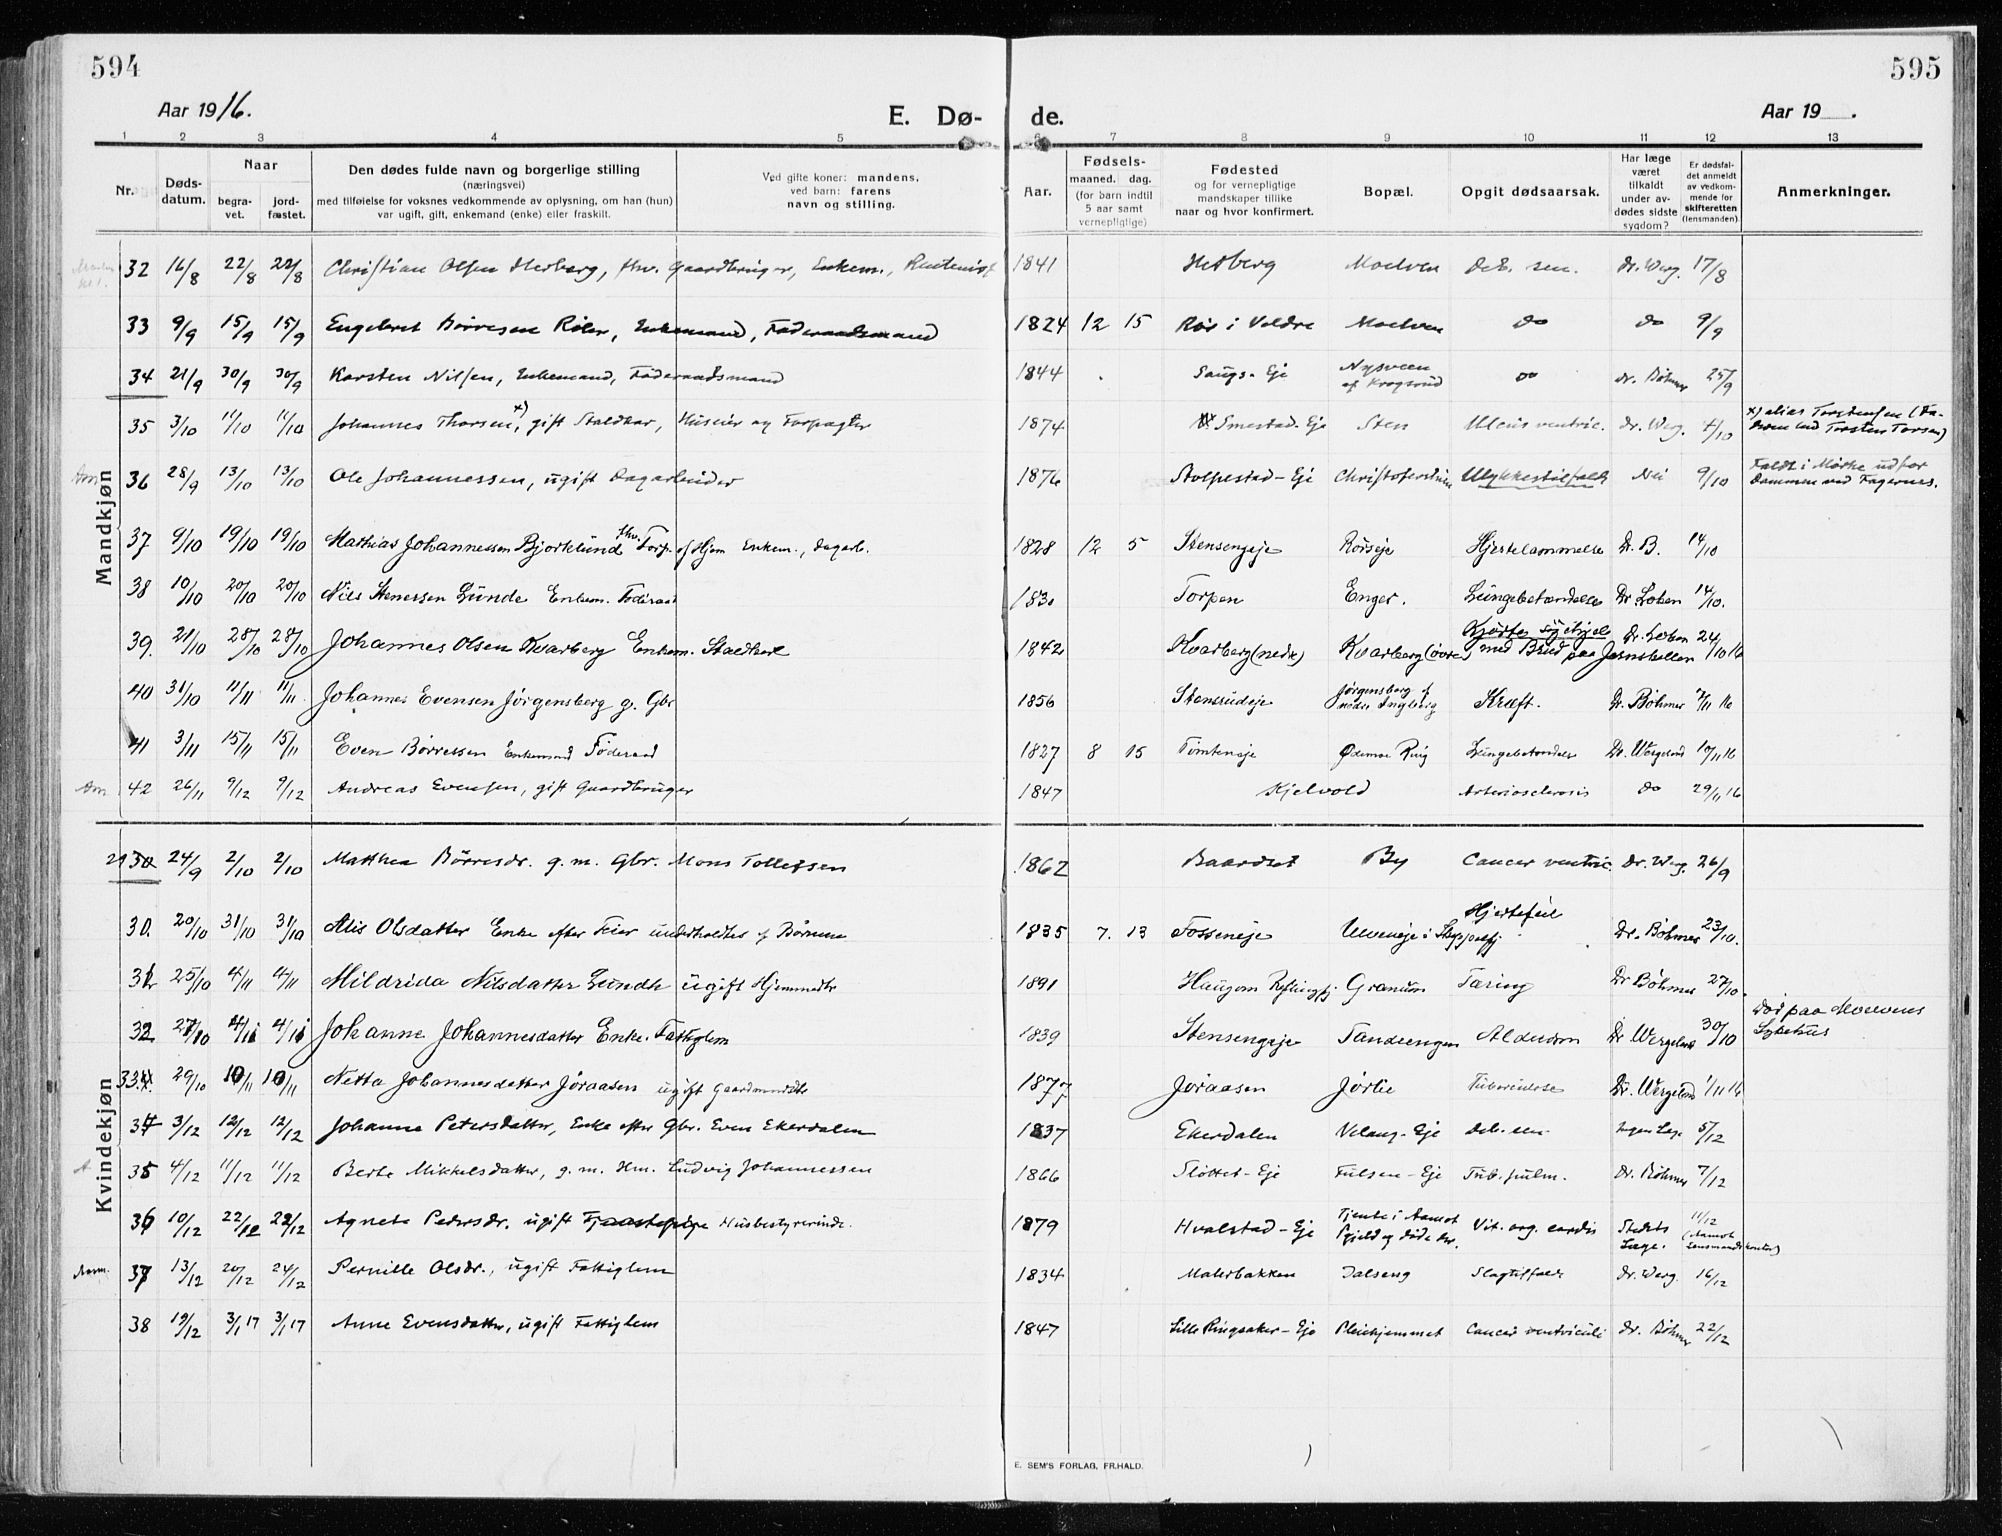 594
595
Aar 1916.
E. Dø-
de.
Aar 19 .
1 2 3 4 5 6 7 8 9 10 11 12 13
Nr.
Døds-
datum.
Naar
begra-
vet.
jord-
fæstet.
Den dødes fulde navn og borgerlige stilling
(næringsvei)
med tilføielse for voksnes vedkommende av oplysning, om han (hun)
var ugift, gift, enkemand (enke) eller fraskilt.
Ved gifte koner: mandens,
ved barn: farens
navn og stilling.
Aar.
Fødsels-
maaned. dag.
(for barn indtil
5 aar samt
vernepligtige)
Fødested
og for vernepligtige
mandskaper tillike
naar og hvor konfirmert.
Bopæl.
Opgit dødsaarsak.
Har læge
været
tilkaldt
under av-
dødes sidste
sygdom?
Er dødsfal-
det anmeldt
av vedkom-
mende for
skifteretten
(lensmanden)
Anmerkninger.
Mandkjøn
32 16/8 22/8 22/8 Christian Olsen Herberg, fhv. Gaardbruger, Enkem., Rentenist 1841 Hesberg Moelven Deb. sen. Dr. Werg. 17/8
33 9/9 15/9 15/9 Engebret Børresen Röler, Enkemand, Føderaadsmand 1824 12 15 Rör i Veldre Moelven do do 9/9
34 21/9 30/9 30/9 Karsten Nilsen, Enkemand, Föderaadsmand 1844 Saugs-Eje Nysveen af Krogsrud do Dr. Böhmer 25/9
35 3/10 11/10 11/10 Johannes Thorsen x), gift Staldkar, Huseier og Forpagter 1874 Smestad-Eje Sten Ulcus ventric. Dr. Werg. 4/10 x) alias Torstensen (Fa-
deren hed Torsten Torsen)
Am 36 28/9 13/10 13/10 Ole Johannessen, ugift Dagarbeider 1876 Stolpestad-Eje Ulykkestilfælde Nei 9/10 Faldt i Mörke udfor
Dammen ved Fagernes.
37 9/10 19/10 19/10 Mathias Johannessen Bjorklund fhv. Torp. af Hjem Enkem., dagarb. 1828 12 5 Stensengeje Rörseje Hjertelammelse Dr. B. 14/10
38 10/10 20/10 20/10 Nils Stenersen Lunde Enkem. Föderaad 1830 Torpen Enger. Lungebetændelse Dr Loken 14/10.
39. 21/10 28/10 28/10 Johannes Olsen Kvarberg Enkem. Staldkarl 1842 Kvarberg (nedre) Kvarberg (øvre) Kjørtes ihjel
med Brud paa Dr. Loken 24/10 16
40 31/10 11/11 11/11 Johannes Evensen Jörgensberg g. Gbr 1856 Stensrudeje Jørgensberg af
nedre Ingberg Kræft. Dr. Böhmer 2/11 16
41 3/11 15/11 15/11 Even Börressen Enkemand Föderaad 1827 8 15 Tömteneje Ödemoe Ring Lungebetændelse Dr. Wergeland 10/11 16
Am 42 26/11 9/12 9/12 Andreas Evensen, gift Gaardbruger 1847 Kjelvold Arteriosclerosis do 29/11 16
Kvindekjøn
29 30 24/9 2/10 2/10 Matthea Börresdr. g. m. Gbr. Mons Tollefsen 1862 Baardset By Cancer ventric. Dr. Werg. 26/9
30. 20/10 31/10 31/10 Alis Olsdatter Enke efter Feier underholdtes af Börnene 1835 7. 13 Fosseneje Ulveneje i Hjertefeil Dr. Böhmer 23/10.
31 25/10 4/11 4/11 Mildrida Nilsdatter Lundh ugift Hjemmedtr 1891 Haugom Granum Tæring Dr Böhmer 27/10.
32 27/10 4/11 4/11 Johanne Johannesdatter Enke. Fattiglem 1839 Stensengeje Tandsengen Alderdom Dr Wergeland 30/10 Död paa Moelvens
Sykehus
33 29/10 10/11 10/11 Netta Johannesdatter Jöraasen ugift Gaardmandsdtr 1877 Jöraasen Jörlie Tuberculose Dr. Wergeland 1/11 16
34 3/12 12/12 12/12 Johanne Petersdatter, Enke efter Gbr. Even Ekerdalen 1837 Ekerdalen Velang-Eje Deb. sen. Ingen Læge 5/12
A 35 4/12 11/12 11/12 Berte Mikkelsdatter, g. m. Hm. Ludvig Johannessen 1866 Slöttet-Eje Fulsen-Eje Tub. pulm. Dr. Böhmer 7/12
36 10/12 22/12 22/12 Agnete Pedersdr. ugift Husbestyrerinde. 1879 Hvalstad-Eje Tjente i Aamot
og døde der. Vit. org. cordis Stedets
Læge. 11/12
(Aamot
Lensmandskontor)
Aam. 37 13/12 20/12 24/12 Pernille Olsdr., ugift Fattiglem 1834 Malerbakken Dalseng Slagtilfælde Dr. Werg. 16/12
38 19/12 3/1 17 3/1 17 Anne Evensdatter, ugift Fattiglem 1847 Lille Ringsaker-Eje Pleiehjemmet Cancer ventriculi Dr. Böhmer 22/12
E. SEM'S FORLAG, FR.HALD.